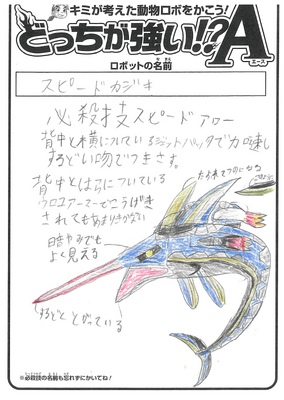 キミが考えた動物ロボをかこう!
どっちが強い!?A
エース
ロボットの名前
スピードカジキ
必殺技スピードアロー
背中と横についているジェットパックでカロ速し
するどい口でつきます。
背中とはらについている
ウロコアーマーでこうげき
されてもあまりきかない
暗やみでも
よく見える
するどくとがっている
※必殺技の名前も忘れずにかいてね!